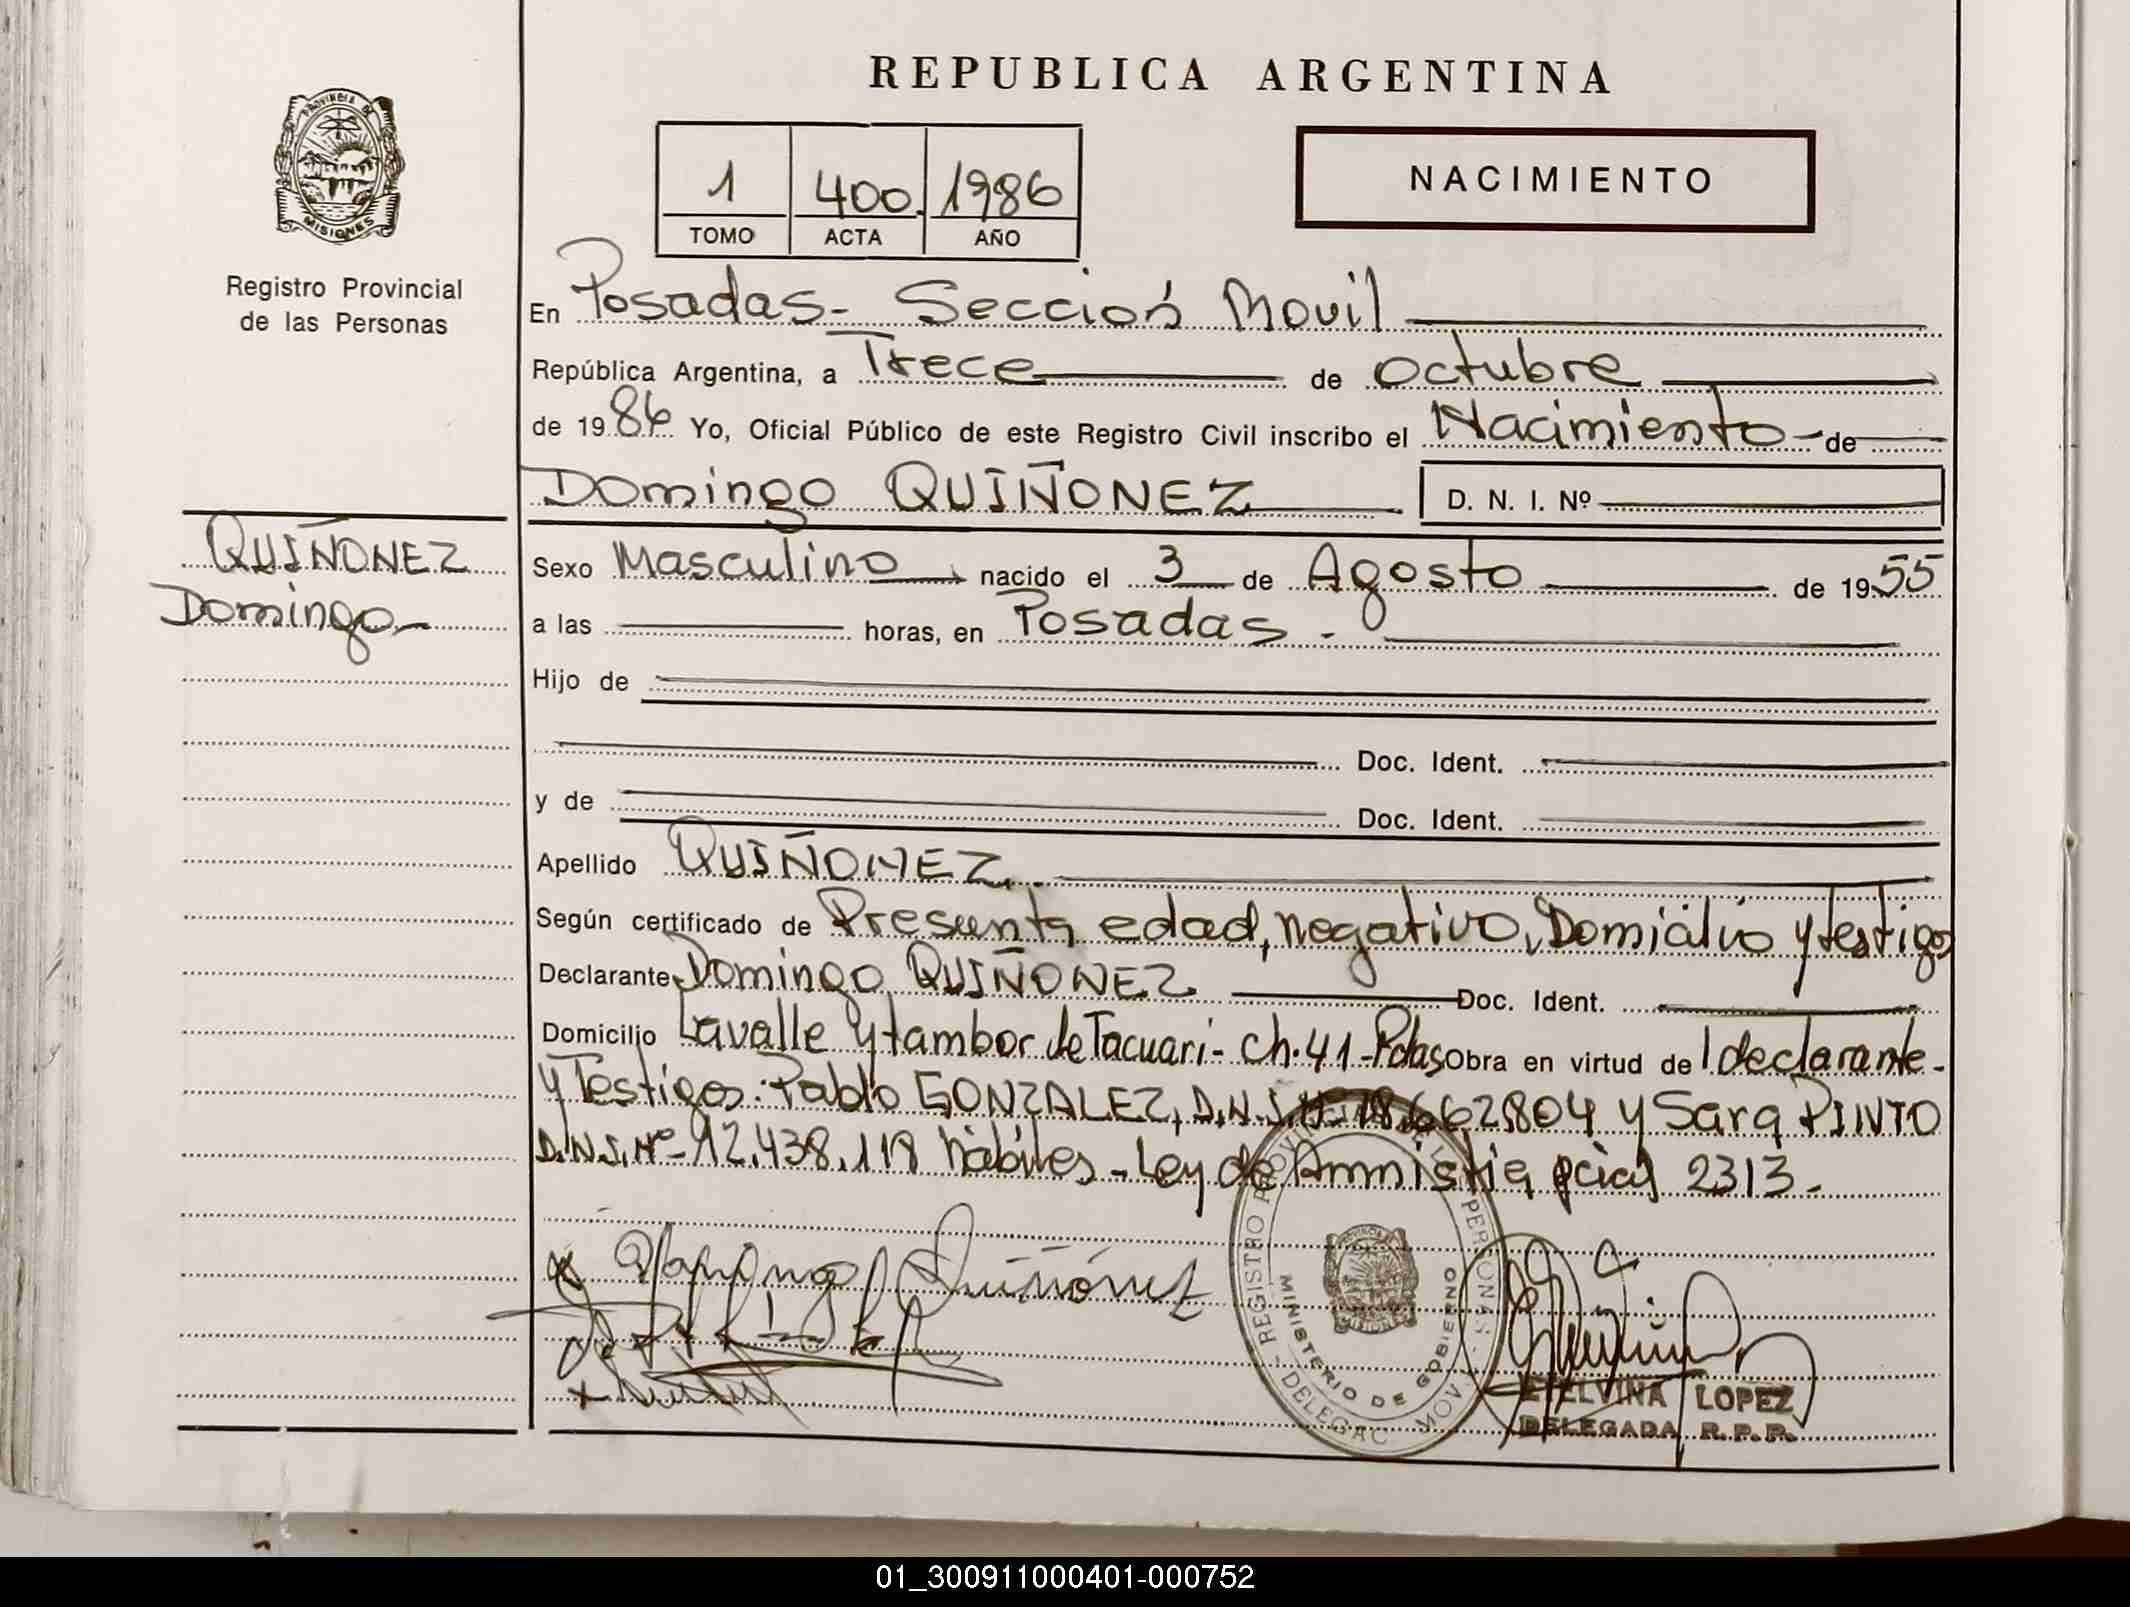 REPUBLICA ARGENTINA
PROVINCIA DE
MISIONES
Registro Provincial
de las Personas
1 400. 1986
TOMO ACTA AÑO
NACIMIENTO
En Posadas - Sección Movil
República Argentina, a Trece de octubre
de 1986 Yo, Oficial Público de este Registro Civil inscribo el Nacimiento - de
Domingo QUIÑONEZ D. N. I. Nº
QUIÑONEZ
Domingo -
Sexo Masculino nacido el 3 de Agosto de 1955
a las horas, en Posadas -
Hijo de
Doc. Ident.
y de Doc. Ident.
Apellido QUIÑONEZ
Según certificado de Presunta edad, negativo, Domicilio y testigos
Declarante Domingo QUIÑONEZ Doc. Ident.
Domicilio Lavalle y tambor de Tacuari - Ch. 41 - Pdas Obra en virtud de l declarante -
y Testigos: Pablo GONZALEZ, D.N.I. Nº 18.662.804 y Sara PINTO
D.N.I. Nº 12.438.118 hábiles - Ley de Amnistia pcial 2313 -
x Domingo Quiñónez
REGISTRO PROVINCIAL DE LAS PERSONAS - DELEGAC MOV
MINISTERIO DE GOBIERNO
ETELVINA LOPEZ
DELEGADA R. P. P.
01_300911000401-000752